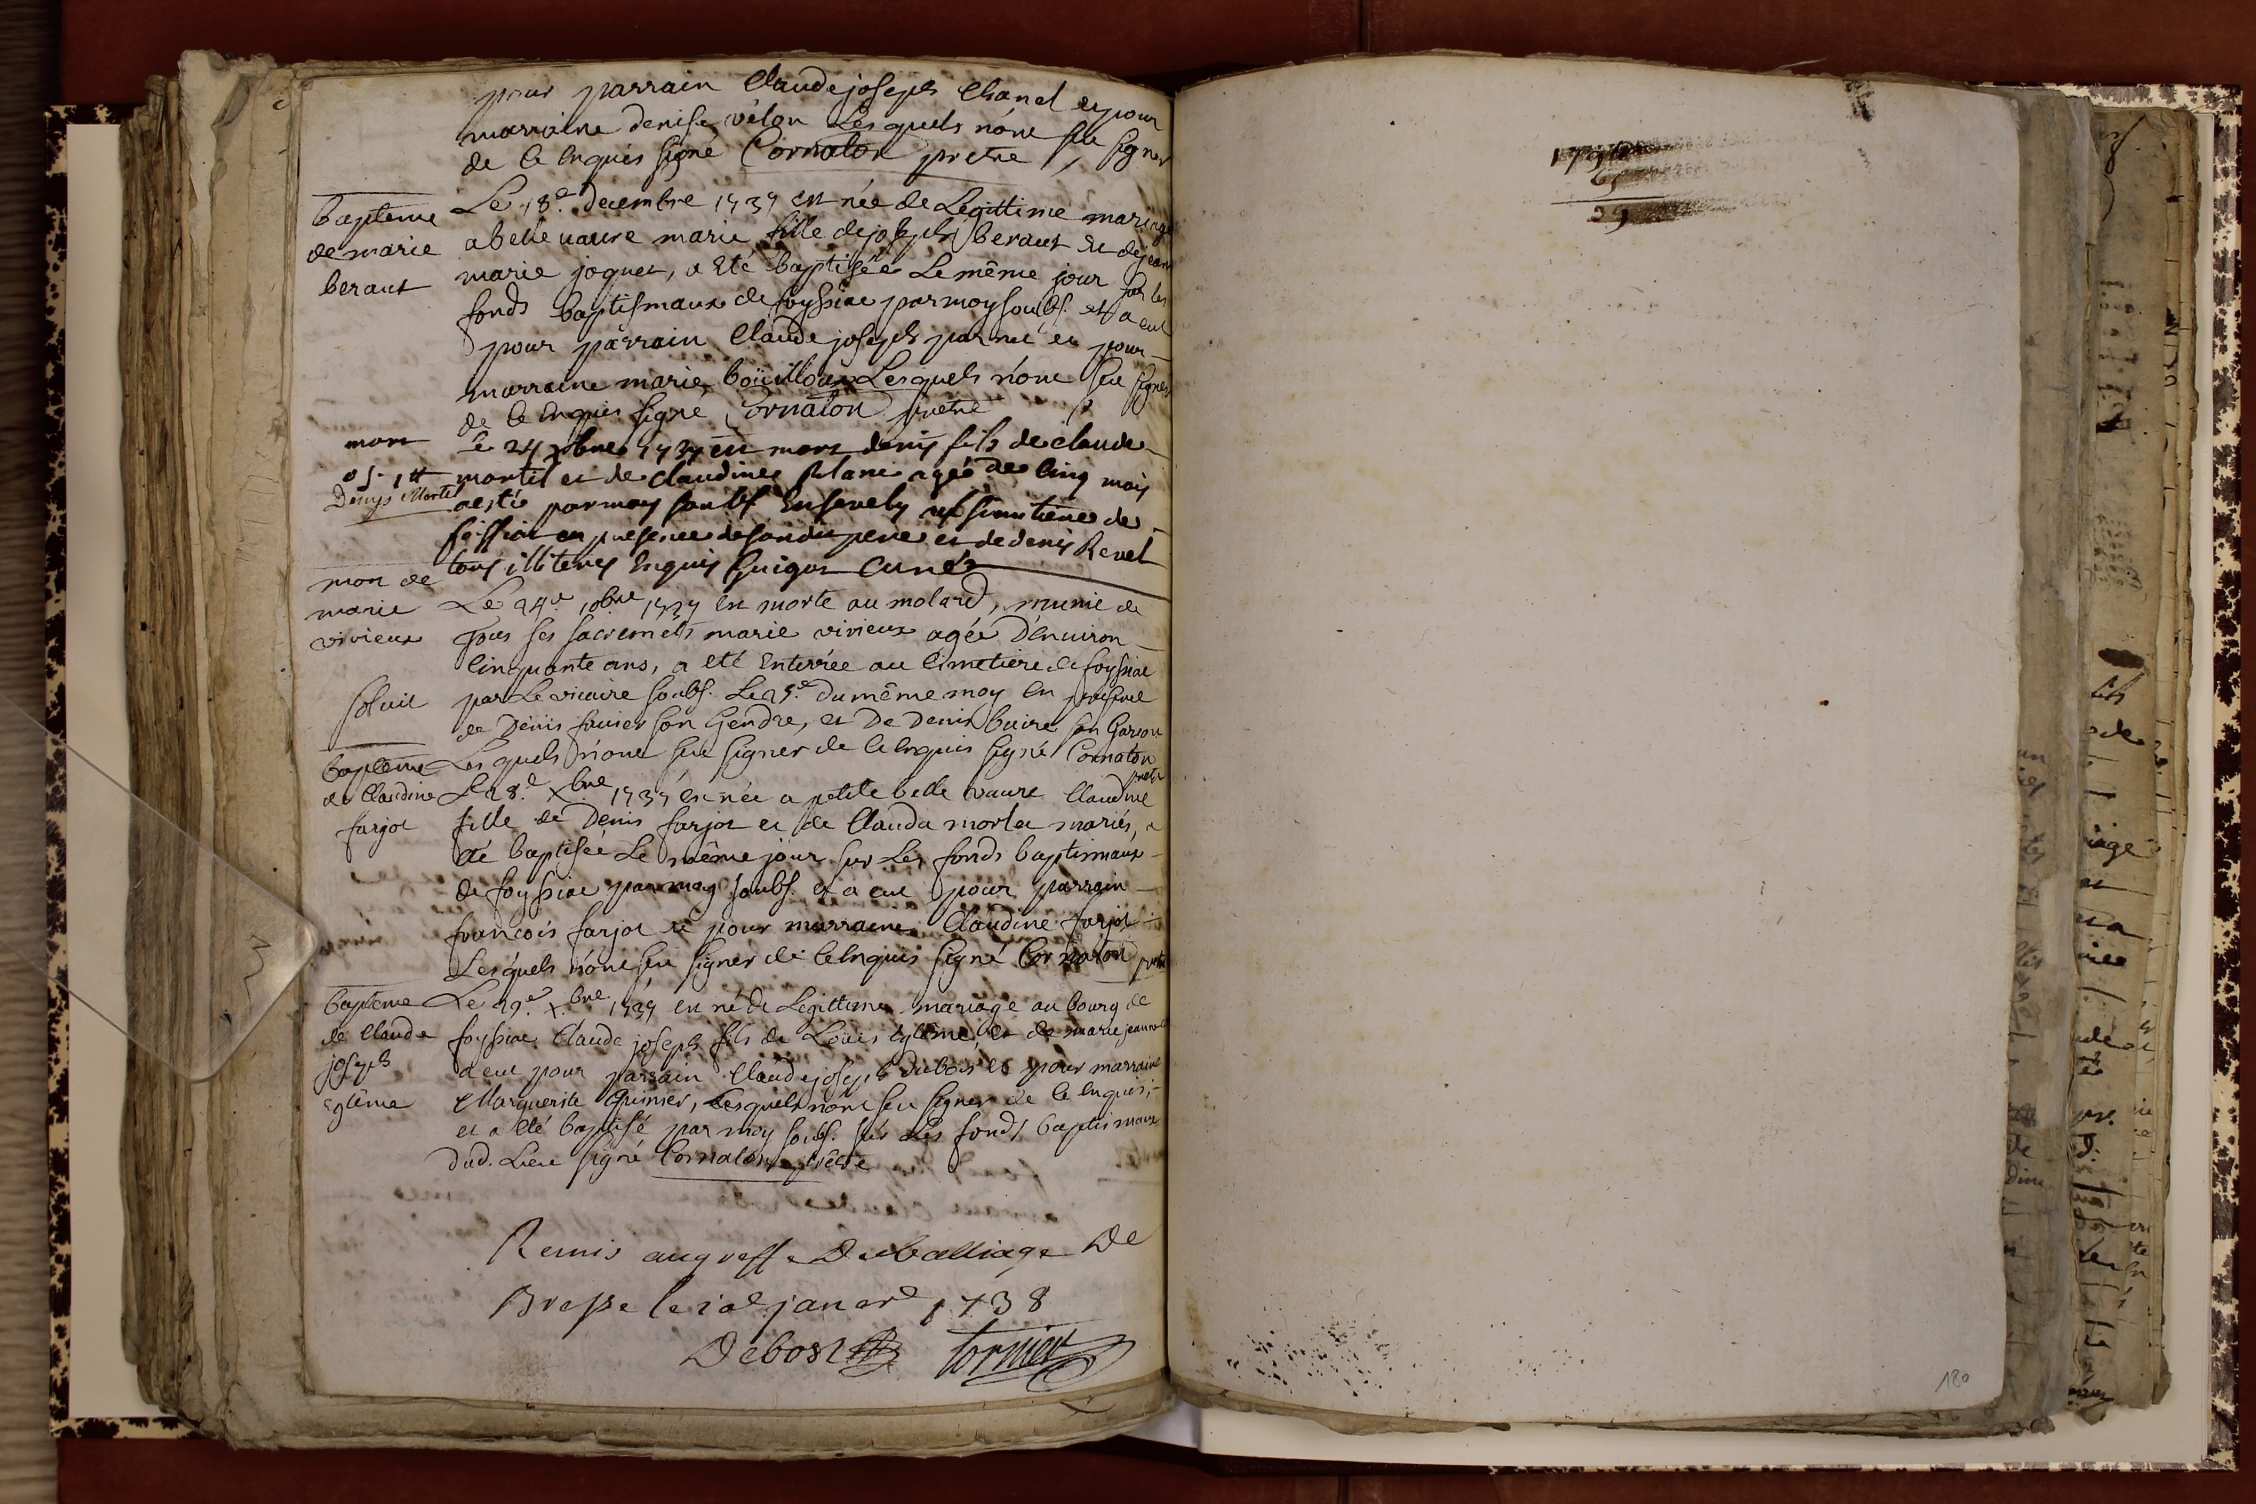 pour parrain Claude joseph Chanel et pour
marraine denise vélon Lesquels n'ont sceu signer
de ce Enquis signé Cornaton pretre
Baptême
de marie
beraut
Le 18e. decembre 1737 est née de Legittime mariage
a belle vavre marie fille de joseph beraut et de jeanne
marie joquet, a Eté baptisée Le même jour sur les
fonds baptismaux de foyssiac par moy soubs. et a eut
pour parrain Claude joseph et pour
marraine marie boüilloux Lesquels n'ont sceu signer
de ce Enquis signé Cornaton pretre
mort
Denys Mortel
Le 24 xbre 1737 est mort denis fils de claude
mortel et de claudine Blanc agée de cinq mois
a esté par moy soubs Ensevely au simetiere de
foissiat en presence de sondit pere et de denis Revel
tous illiterés Enquis Guigot Curé
mort de
marie
vivieux
solvit
Le 24e. 10bre 1737 est morte au molard, munie de
Tous ses sacremets marie vivieux agée D'environ
cinquante ans, a eté Enterrée au Cimetiere de foyssiac
par Le vicaire soubs. Le 25e. du même moy en presence
de Denis favier son Gendre, et De Denis buire son Garcon
Lesquels n'ont sceu signer de ce Enquis signé Cornaton
pretre
baptême
de Claudine
farjot
Le 28.e xbre 1737 est née a petite belle vavre Claudine
fille de Denis farjot et de Clauda morlet mariés, a
eté baptisée Le même jour sur Les fonds baptismaux
de foyssiac par moy soubs. et a eut pour parrain
francois farjot et pour marraine Claudine farjot
Lesquels n'ont sceu signer de ce Enquis signé Cornaton pretre
baptême
de Claude
joseph
Eglême
Le 29.e x.bre 1737 est né de Legittime mariage au bourg de
foyssiac Claude joseph fils de Loüis Eglême, et de marie
a eut pour parrain Claude joseph dubois et pour marraine
Marguerite Grinier, Lesquels n'ont sceu signer de ce Enquis,
et a eté baptisé par moy soubs. sur Les fonds baptismaux
dud. Lieu signé Cornaton pretre
Remis au greffe Du balliage De
Bresse le janvre 1738
Debost Tornier
29
180